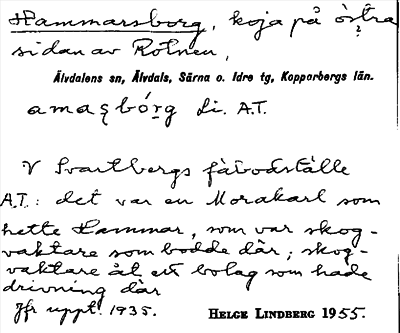 Hammarsborg, koja på östra
sidan av Rotnen,
Älvdalens sn, Älvdals, Särna o. Idre tg, Kopparbergs län.
amaşbórg Li. A.T.
V Svartbergs fäbodställe
A.T.: det var en Morakarl som
hette Hammar, som var skog-
vaktare som bodde där; skog-
vaktare åt ett bolag som hade
drivning där
Jfr uppt. 1935.
HELGE LINDBERG 1955.